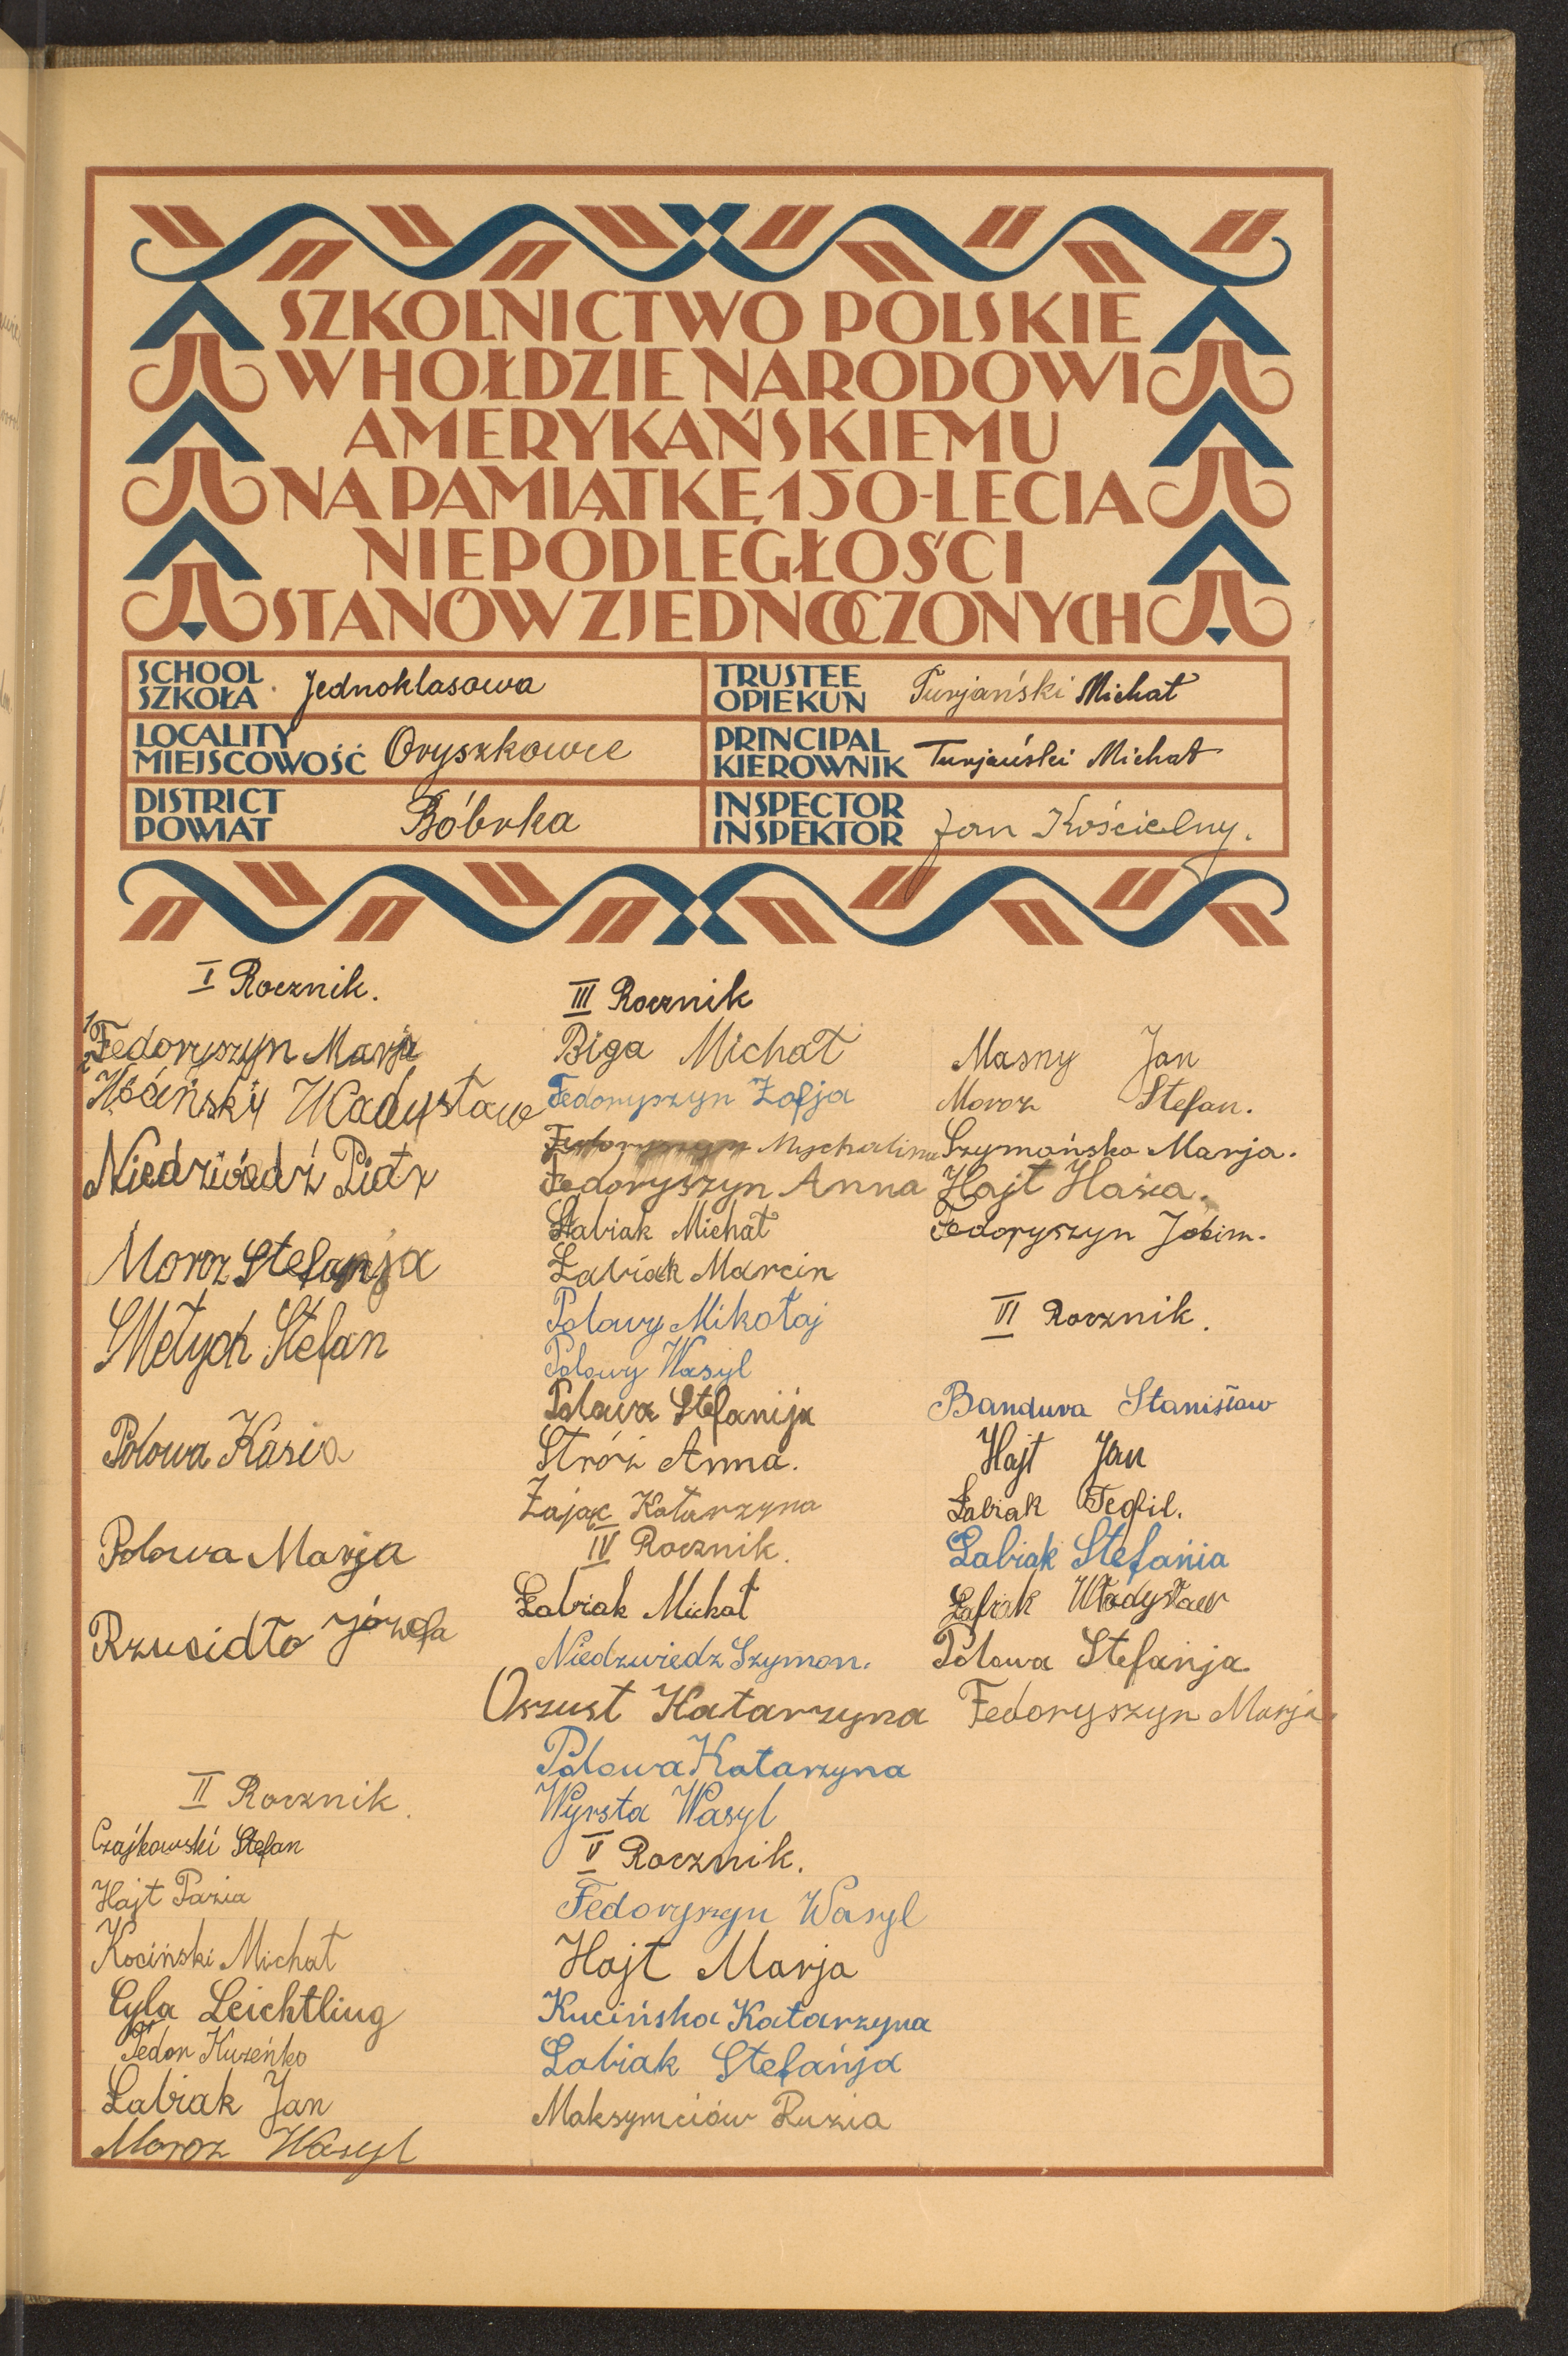 SZKOLNICTWO POLSKIE
W HOŁDZIE NARODOWI
AMERYKAŃSKIEMU
NA PAMIĄTKĘ 150-LECIA
NIEPODLEGŁOŚCI
STANÓW ZJEDNOCZONYCH
SCHOOL
SZKOŁA Jednoklasowa
TRUSTEE
OPIEKUN Turjański Michał
LOCALITY
MIEJSCOWOŚĆ Oryszkowce
PRINCIPAL
KIEROWNIK Turjański Michał
DISTRICT
POWIAT Bóbrka
INSPECTOR
INSPEKTOR Jan Kościelny.
I Rocznik.
Fedoryszyn Marja
Władysław
Niedźwiedź Piotr
Moroz Stefanja
Mełych Stefan
Połowa Kasia
Połowa Marja
Rzucidło Józefa
II Rocznik.
Czajkowski Stefan
Hajt Pazia
Kociński Michał
Cyla Leichtling
Fedor Kuzeńko
Łabiak Jan
Moroz Wasyl
III Rocznik
Biga Michał
Fedoryszyn Zofja
Fedoryszyn Mychalina
Fedoryszyn Anna
Łabiak Michał
Łabiak Marcin
Polowy Mikołaj
Polowy Wasyl
Polowa Stefanija
Stróż Anna.
Zając Katarzyna
IV Rocznik.
Łabiak Michał
Niedzwiedz Szymon.
Oszust Katarzyna
Polowa Katarzyna
Wyrsta Wasyl
V Rocznik.
Fedoryszyn Wasyl
Hajt Marja
Kucińska Katarzyna
Łabiak Stefańja
Maksymciów Ruzia
Masny Jan
Moroz Stefan.
Szymańska Marja.
Hajt Hasia.
Fedoryszyn
VI Rocznik.
Bandura Stanisław
Hajt Jan
Łabiak Teofil.
Łabiak Stefania
Łabiak Władysław
Polowa Stefanja
Fedoryszyn Marja.